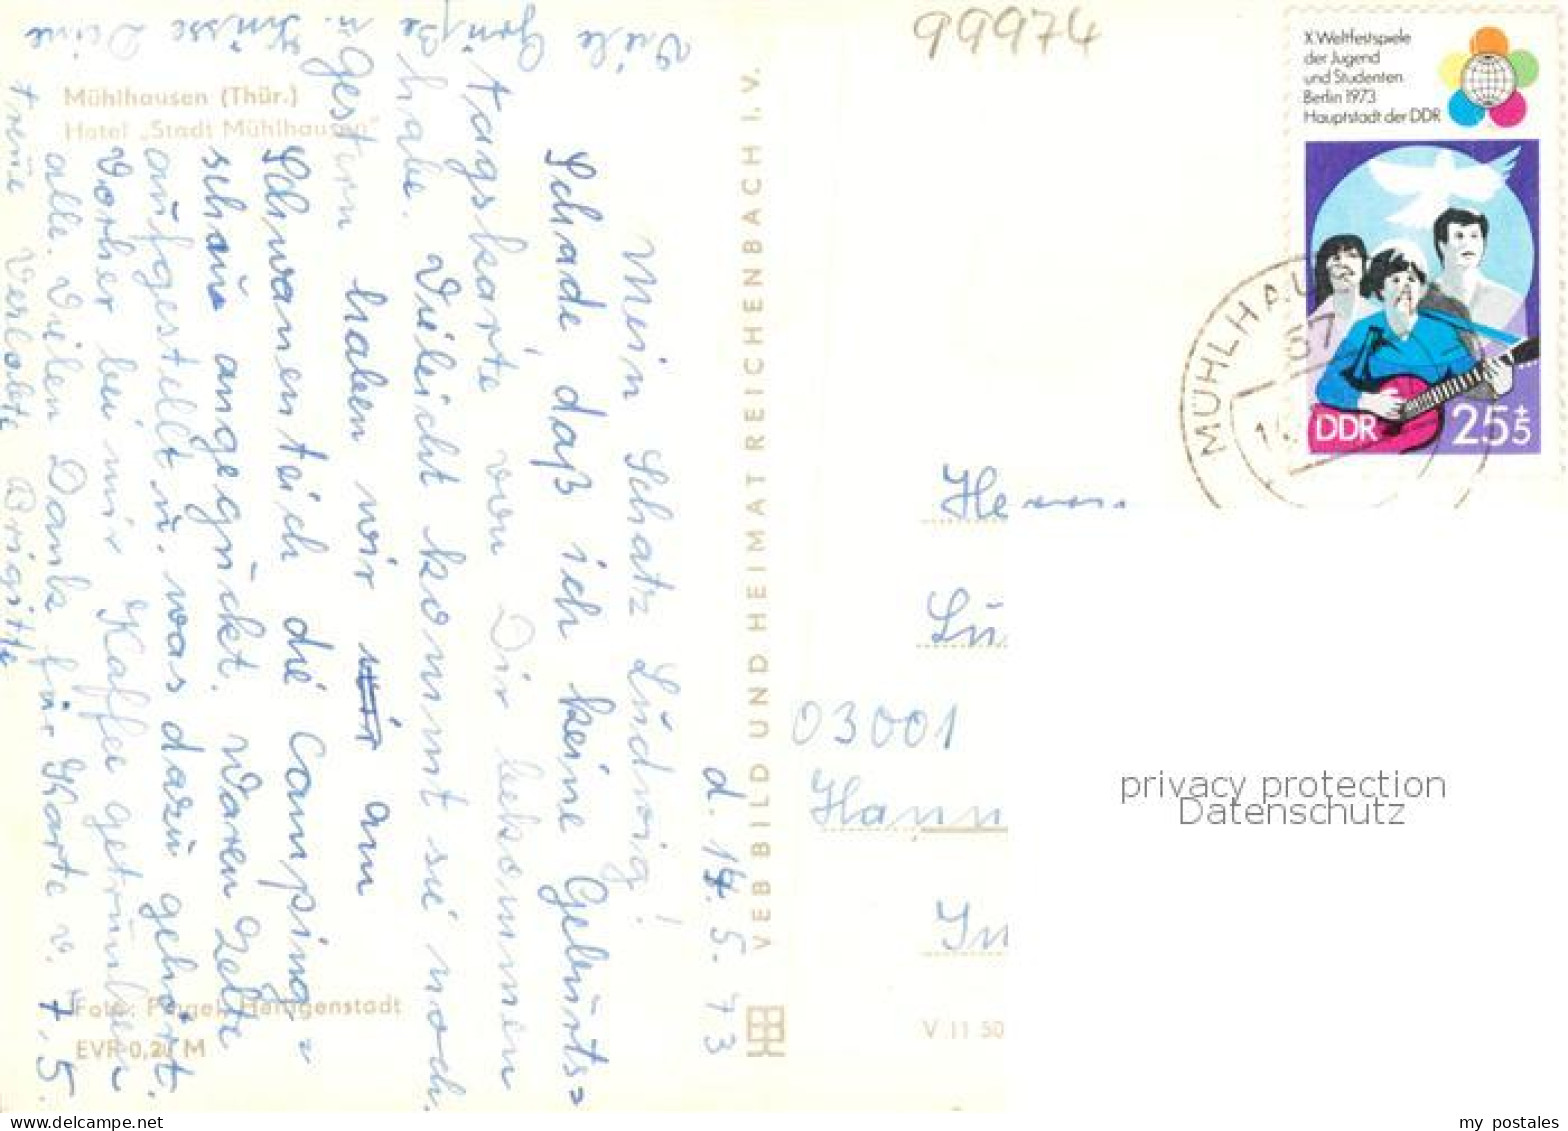 99974
X. Weltfestspiele
der Jugend
und Studenten
Berlin 1973
Hauptstadt der DDR
DDR
25+5
MÜHLHAU
57
14.
Mühlhausen (Thür.)
Hotel „Stadt Mühlhausen"
d. 14. 5. 73
Mein Schatz Ludwig!
Schade daß ich keine Geburts=
tagskarte von Dir bekommen
habe. Vieleicht kommt sie noch.
Gestern haben wir wir am
Schwanenteich die Camping=
schau angegückt. Waren Zelte
aufgestellt u. was dazu gehört.
Vorher bei mir Kaffee getrunken
alle. Vielen Dank für Karte v. 7.5.
Viele Grüße u. Küsse Deine
treue Verlobte Brigitte
VEB BILD UND HEIMAT REICHENBACH I. V.
Foto: Pingel, Heiligenstadt
EVP 0,20 M
V 11 50
Herrn
Lu
03001
Hann
In
privacy protection
Datenschutz
my postales